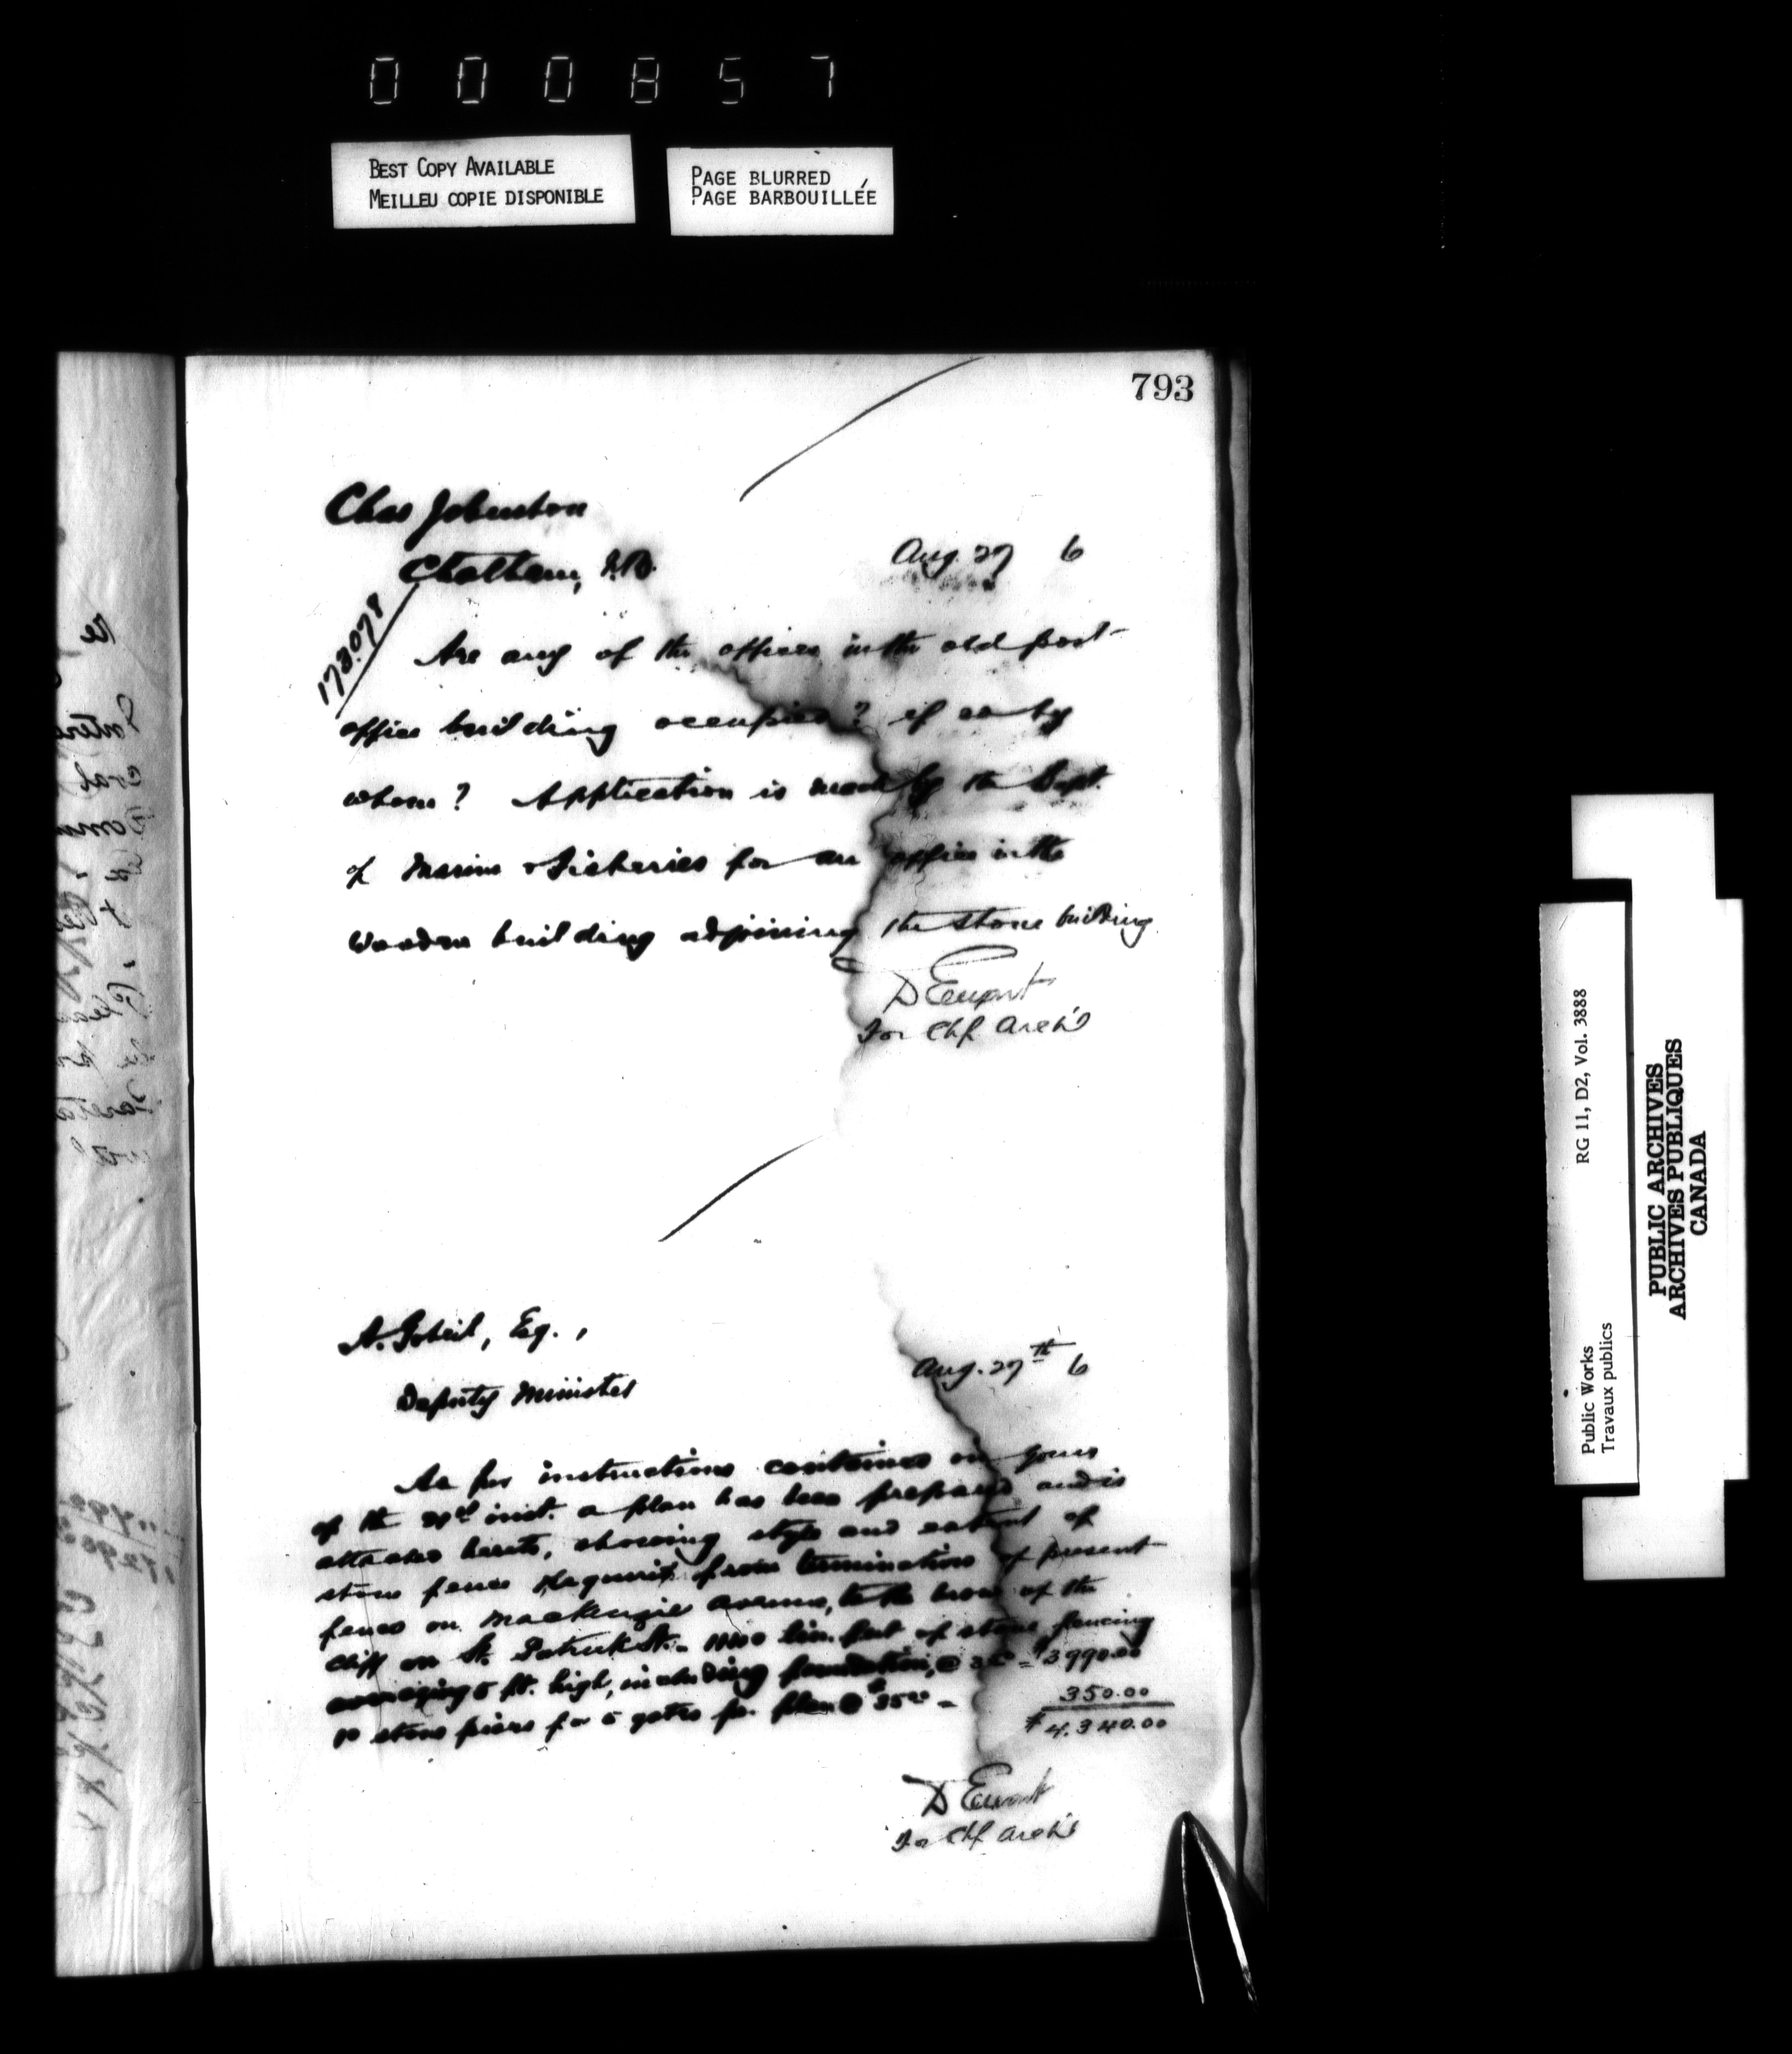 000857
BEST COPY AVAILABLE
MEILLEU COPIE DISPONIBLE
PAGE BLURRED
PAGE BARBOUILLÉE
793
Chas Johnston
Chatham, N.B.
Aug. 27 6
172.078
Are any of the offices in the old post-
office building occupied? if so by
whom? Application is made by the Dept.
of Marine & Fisheries for an office in the
wooden building adjoining the stone building
D Ewart
For Chf. Arch't
A. Gobeil, Esq.,
Deputy Minister
Aug. 27th 6
As per instructions contained on yours
of the inst. a plan has been prepared and is
attached hereto, showing style and extent of
stone fence required from termination of present
fence on Mackenzie Avenue, to the brow of the
cliff on St. Patrick St. lin. feet of stone fencing
averaging 5 ft. high, including foundation, @ = $3990.00
10 stone piers for 5 gates per plan @ $35.00 =
350.00
$4,340.00
D Ewart
For Chf Arch't
RG 11, D2, Vol. 3888
Public Works
Travaux publics
PUBLIC ARCHIVES
ARCHIVES PUBLIQUES
CANADA